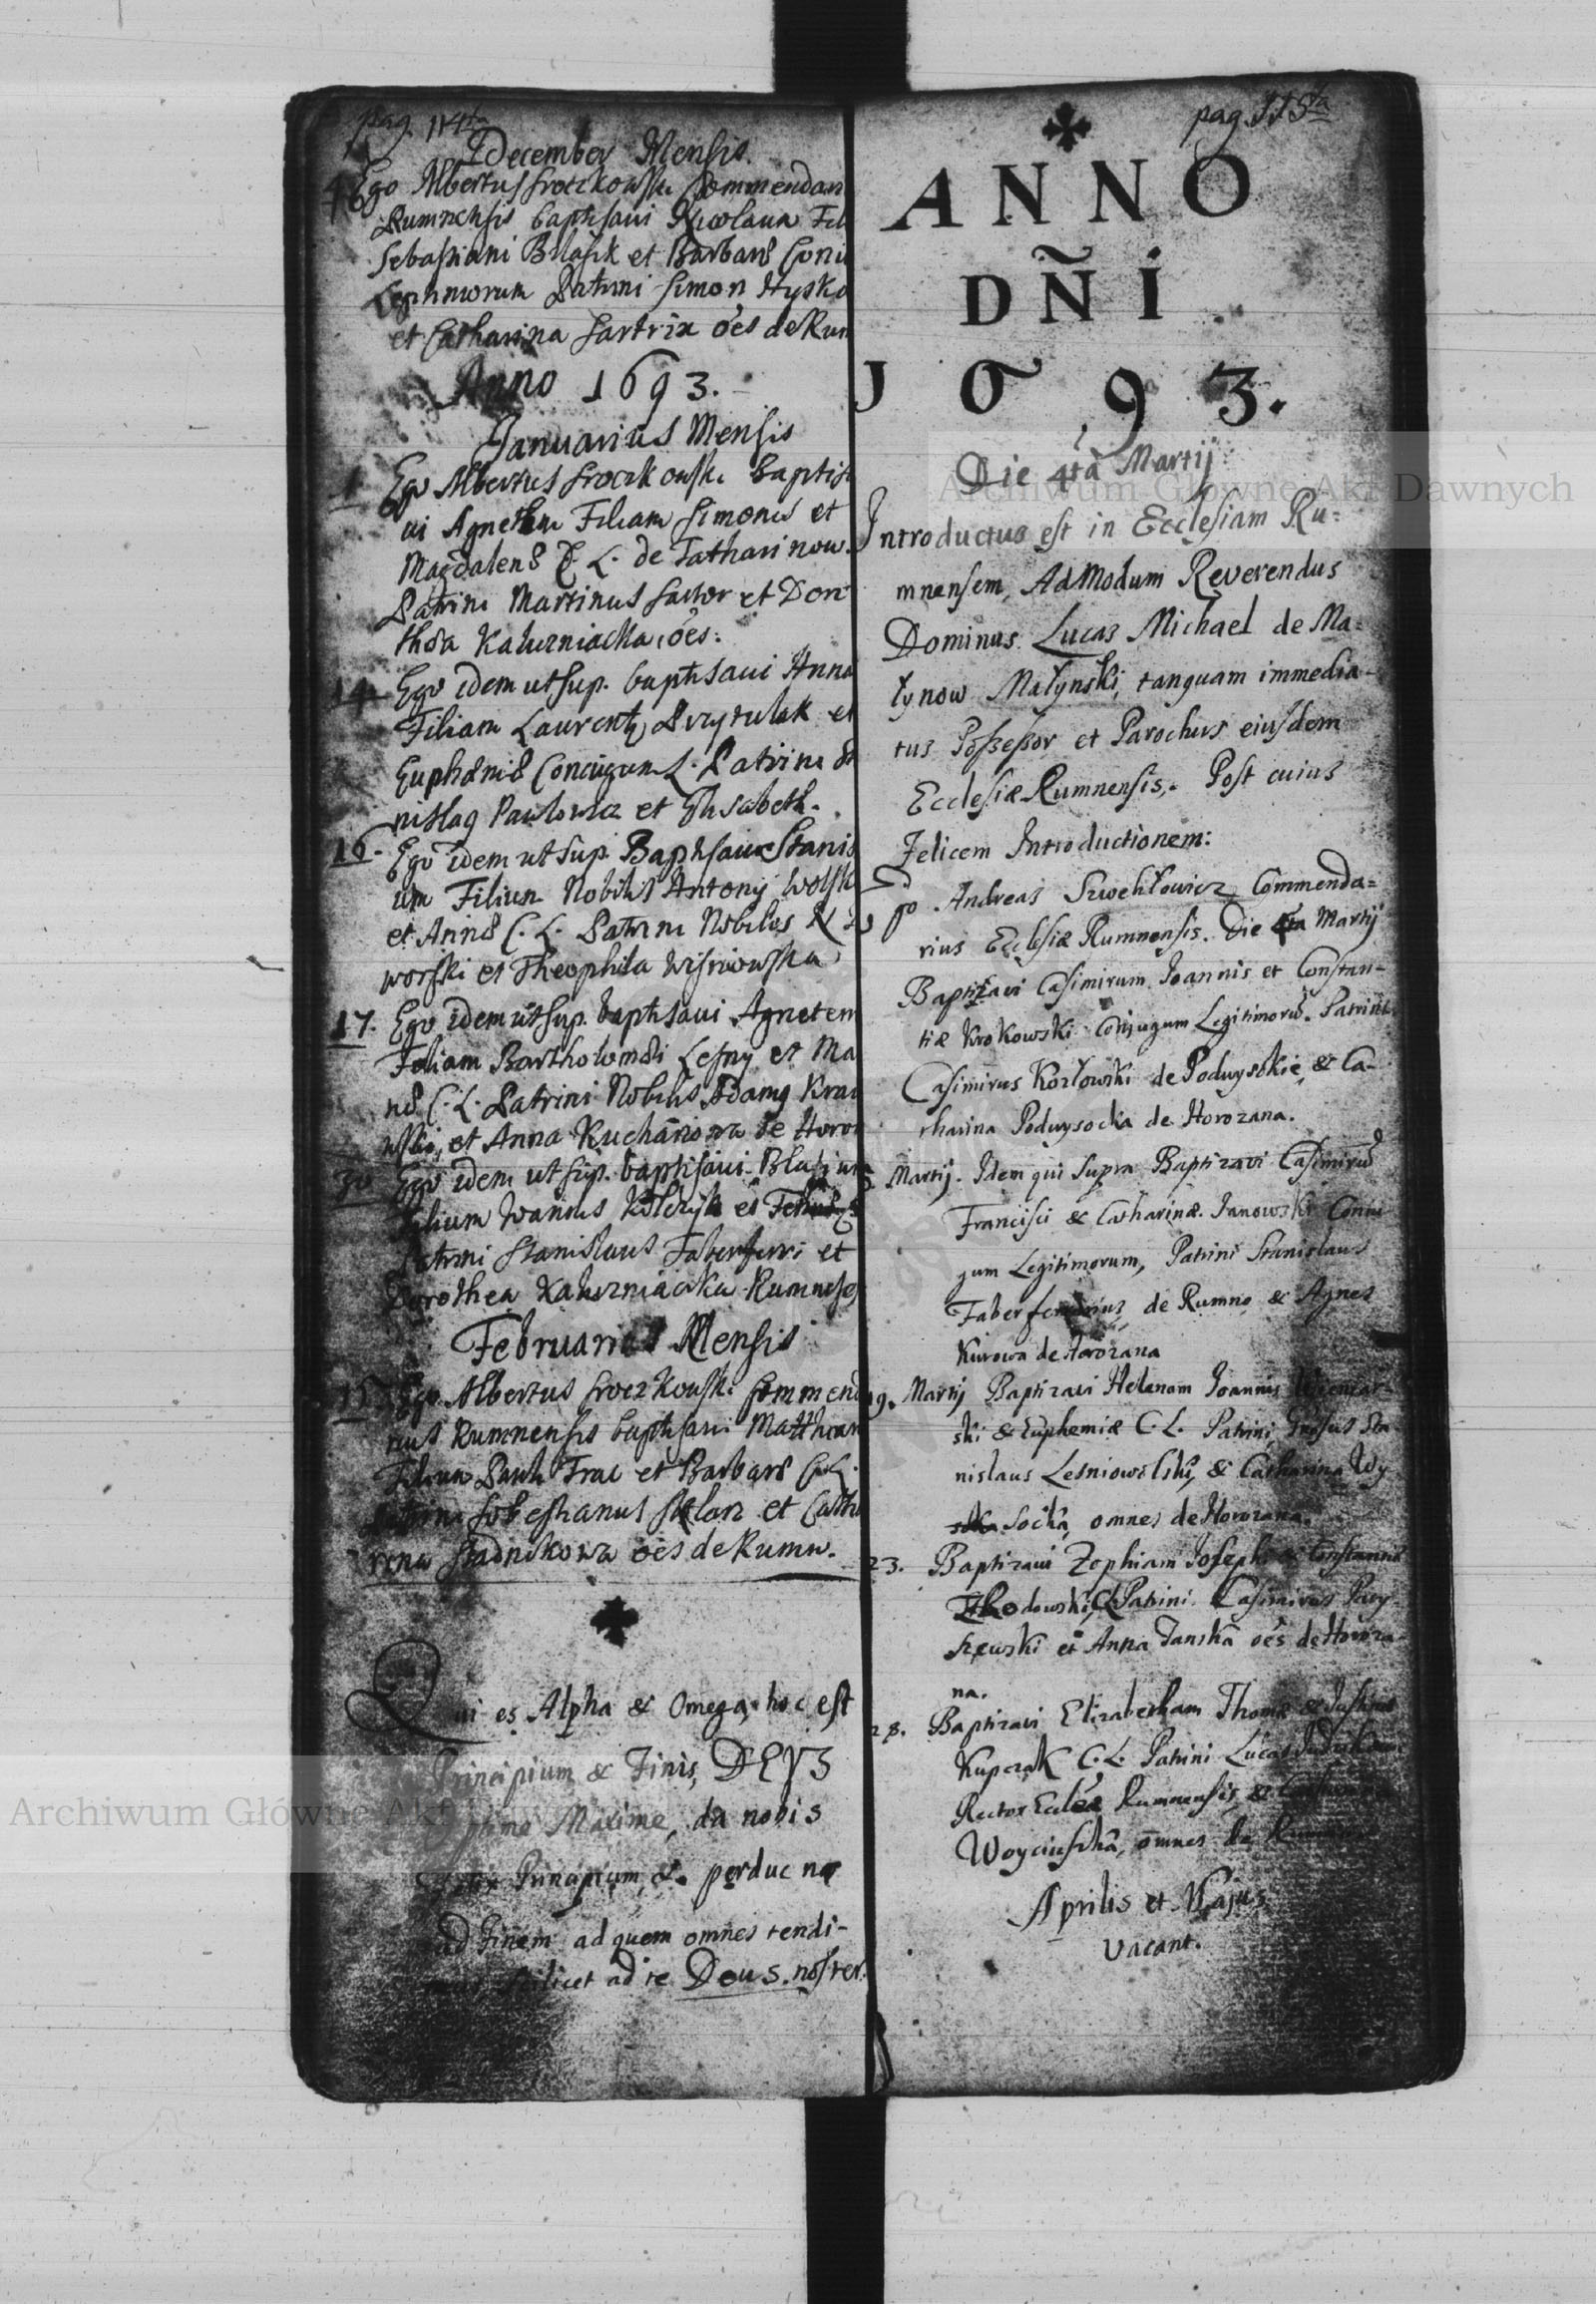 pag. 114ta
December Mensis.
Ego Albertus Sroczkowski Commendan
Rumnensis baptisaui Nicolaum Fil
Sebastiani Blasik et Barbarae Coniu
Legitimorum Patrini Simon Hysko
et Catharina Sartrix oes de Rum
Anno 1693.
Januarius Mensis
1 Ego Albertus Sroczkowski baptisa
ui Agnetem Filiam Simonis et
Magdalenae C. L. de Tatharinow.
Patrini Martinus Sartor et Doro
thea Kaluzniacka, oes.
14 Ego idem ut sup. baptisaui Anna
Filiam Laurentij Przytulak et
Euphemiae Coniugum L. Patrini St
nislaq Pawlowicz et Elisabeth.
16. Ego idem ut sup. Baptisaui Stanis
um Filium Nobilis Antonij Wolsk
et Annae C. L. Patrini Nobiles
worski et Theophila Wisniowska
17. Ego idem ut sup. baptisaui Agnetem
Filiam Bartholomaei Lesny et Ma
nae C. L. Patrini Nobilis Adamq Kra
wski, et Anna Kuchanowa de Horo
30 Ego idem ut sup. baptisaui Blasium
Filium Iwannis et
Patrini Stanislaus Faber ferri et
Dorothea Kaluzniacka Rumnes
Februarius Mensis
15 Ego Albertus Sroczkowski Commend
rius Rumnensis baptisaui Matthiam
Filium Pauli Trac et Barbarae C. L.
Patrini Sebestianus Sklarz et Catha
rena Stadnikowa oes de Rumn.
Qui es Alpha & Omega, hoc est
Principium & Finis, DEVS
Optime Maxime, da nobis
Principium, & perduc nos
ad Finem ad quem omnes tendi-
mus scilicet ad te Deus noster.
pag. 115ta
ANNO
DÑI
1693.
Die 4tâ Martij
Introductus est in Ecclesiam Ru=
mnensem, AdModum Reverendus
Dominus Lucas Michael de Ma=
łynow Małynski, tanquam immedia-
tus Possessor et Parochus eiusdem
Ecclesiæ Rumnensis. Post cuius
Felicem Introductionem:
Ego Andreas Szwehłowicz Commenda=
rius Ecclesiæ Rumnensis. Die 4ta Martij
Baptizavi Casimirum Joannis et Constan-
tiæ Krokowski Conjugum Legitimorũ. Patrini
Casimirus Kozłowski de Podwysokie, & Ca-
tharina Podwysocka de Horozana.
Martij. Idem qui supra Baptizavi Casimirũ
Francisci & Catharinæ Janowski Conju
gum Legitimorum, Patrini Stanislaus
Faberferrarius de Rumno & Agnes
Kurowa de Horozana
19. Martij Baptizavi Helenam Joannis
ski & Euphemiæ C. L. Patrini Grosus Sta
nislaus Lesniowolski, & Catharina Wy
socka, omnes de Horozana.
23. Baptizavi Zophiam Josephi & Constantiæ
C. L. Patrini. Casimirus Pary-
szewski et Anna Janska oes de Horoza-
na.
28. Baptizavi Elizabetham Thomæ &
Kupczak C. L. Patrini Lucas
Rector Eccleæ Rumnensis, &
Woyciuskã, omnes de
Aprilis et Majus
vacant.